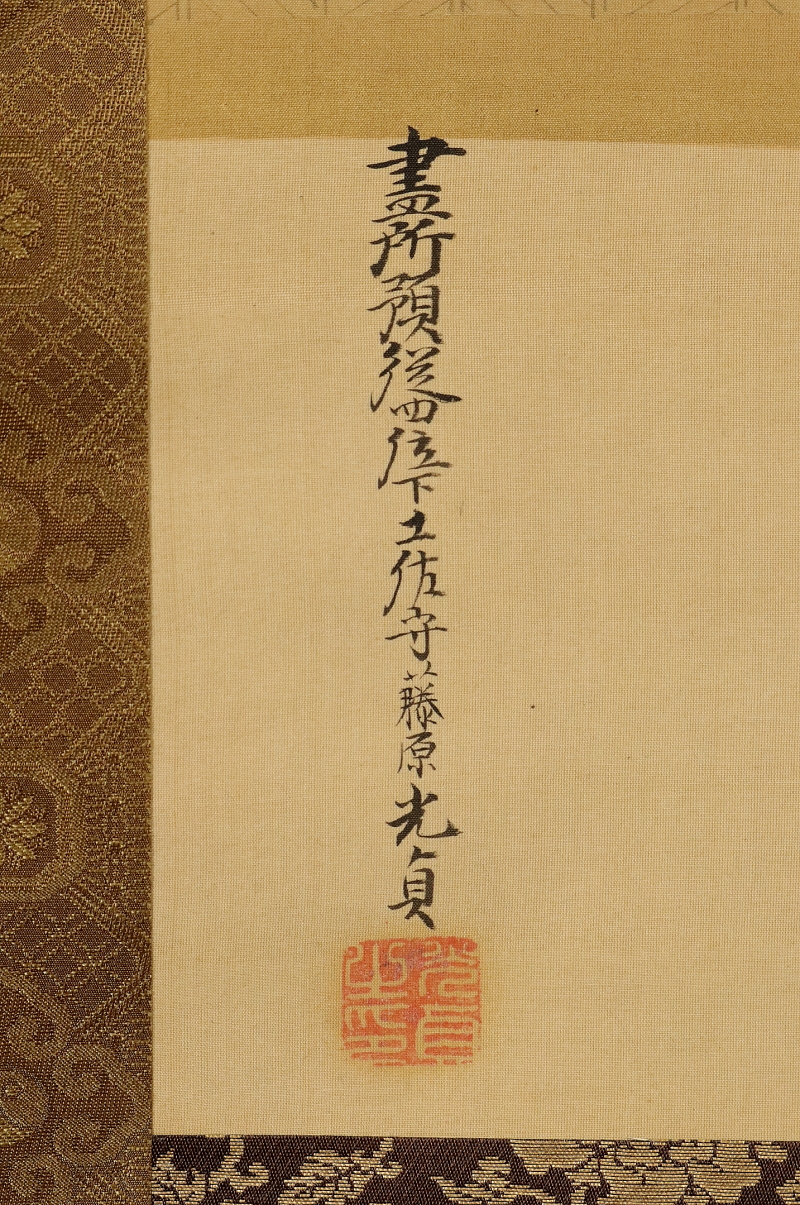 畫所預從四位下土佐守藤原光貞
光貞之印